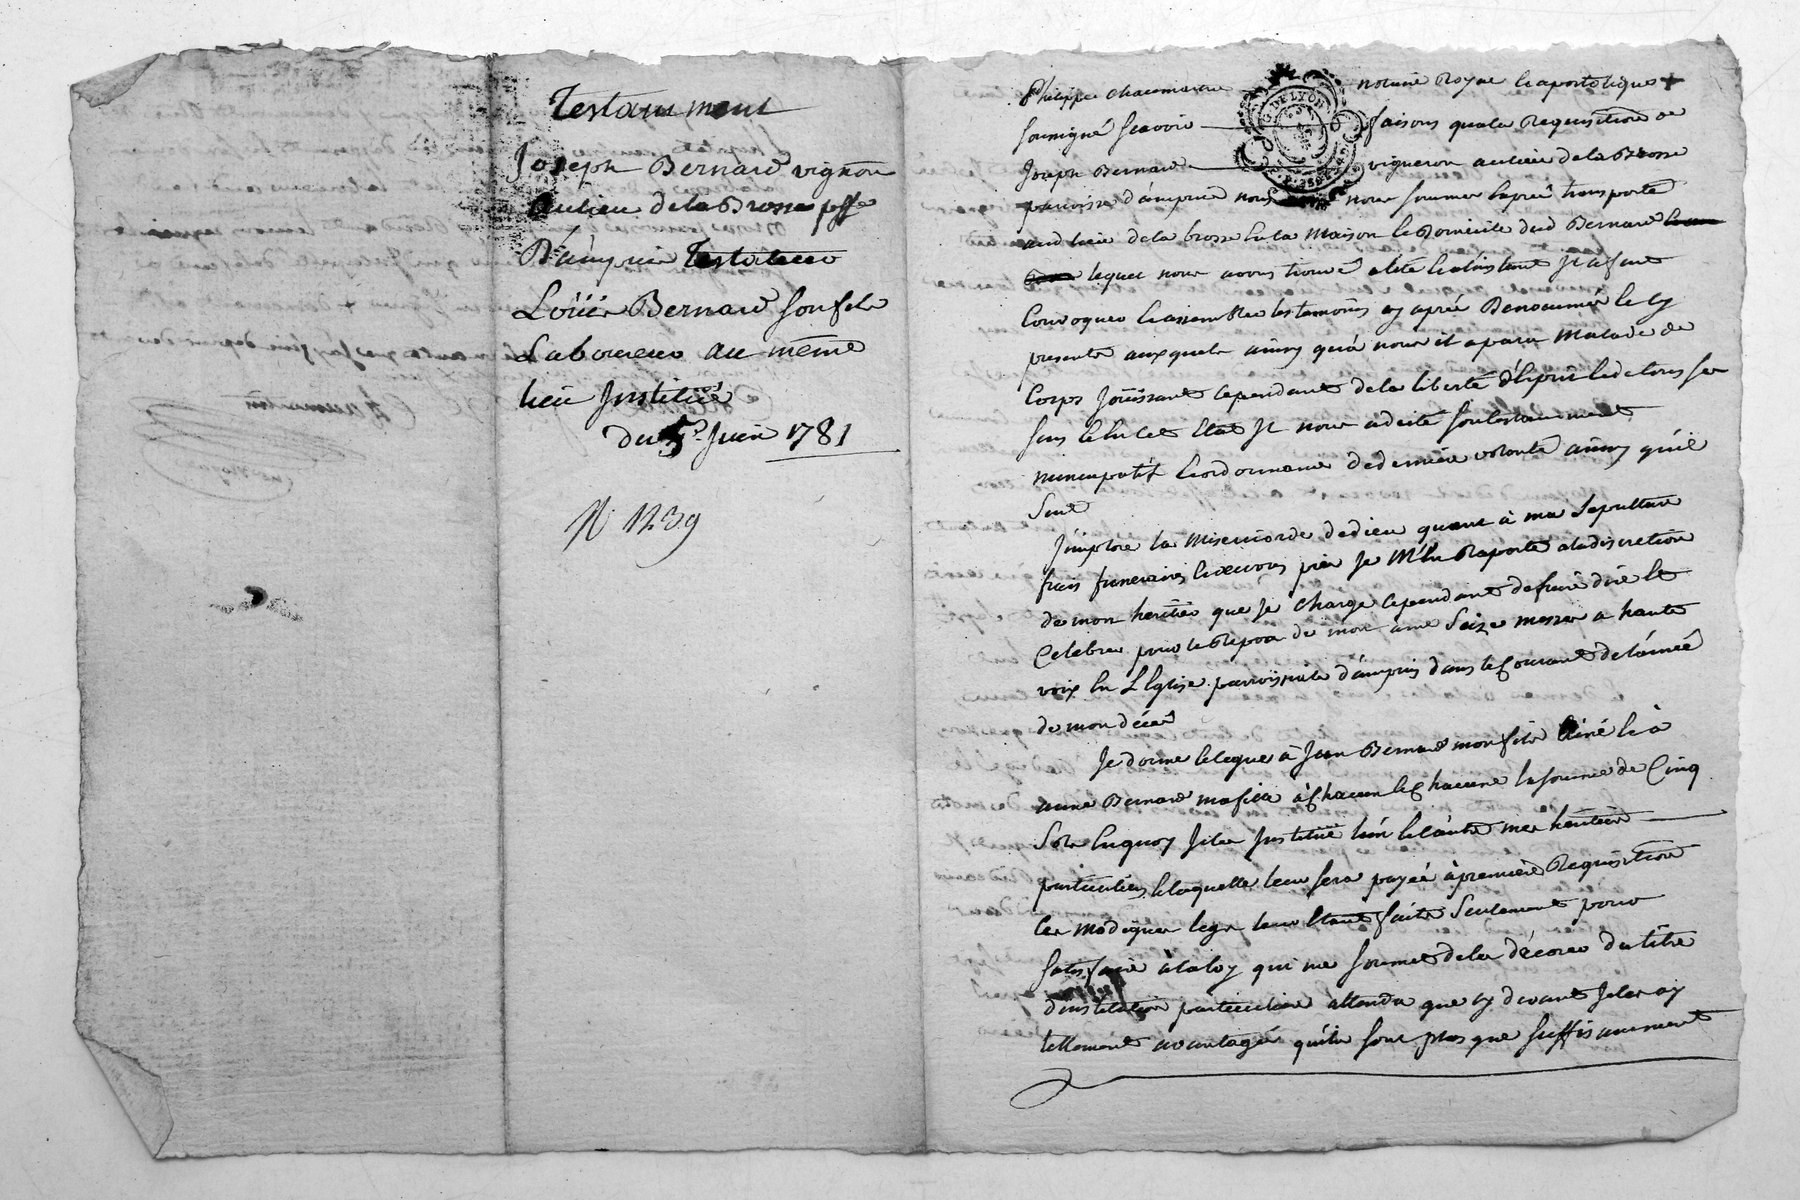 Testament
Joseph Bernard vigneron
au lieu de la Brosse psse
D'ampuis Testateur
Loüis Bernard son fils
Laboureur au même
lieu Institüé
du 5e Juin 1781
N 1239
Philippe notaire Royal & apostolique +
soussigné scavoir faisons qu'à la Requisition de
Joseph Bernard vigneron au lieu de la Brosse
parroisse d'ampuis nous nous sommes exprès transporté
aud lieu de la brosse en la Maison & Domicile dud Bernard
lequel nous avons trouvé alité & à l'instant Il a fait
Convoquer & assembler les temoins cy après Denommés & cy
presents auxquels ainsy qu'à nous il a paru Malade de
Corps Joüissant cependant de la liberté d'Esprit & de tous ses
sens & en cet Etat Il nous a dicté son testament
nuncupatif & ordonnance de derniere volonté ainsy qu'il
Suit
J'implore la Misericorde de dieu quant à ma Sepulture
frais funeraires & œuvres pies Je M'en Raporte à la discretion
de mon heritier que Je Charge cependant de faire dire &
Celebrer pour le Repos de mon ame Seize messes a haute
voix En L'Eglise parroissiale d'ampuis dans le Courant de l'année
de mon décès
Je donne & legue à Jean Bernard mon fils Ainé & à
anne Bernard ma fille à Chacun & Chacune la somme de Cinq
Sols Enquoy Je les Institüe l'un & l'autre mes héritiers
particuliers & laquelle leur sera payée à premiere Requisition
Ces modiques legs leur Etant faits Seulement pour
Satisfaire à la loy qui me soumet de les décorer du titre
d'institution particuliere attendu que cy devant Je les ay
tellement avantagé qu'ils sont plus que suffisamment